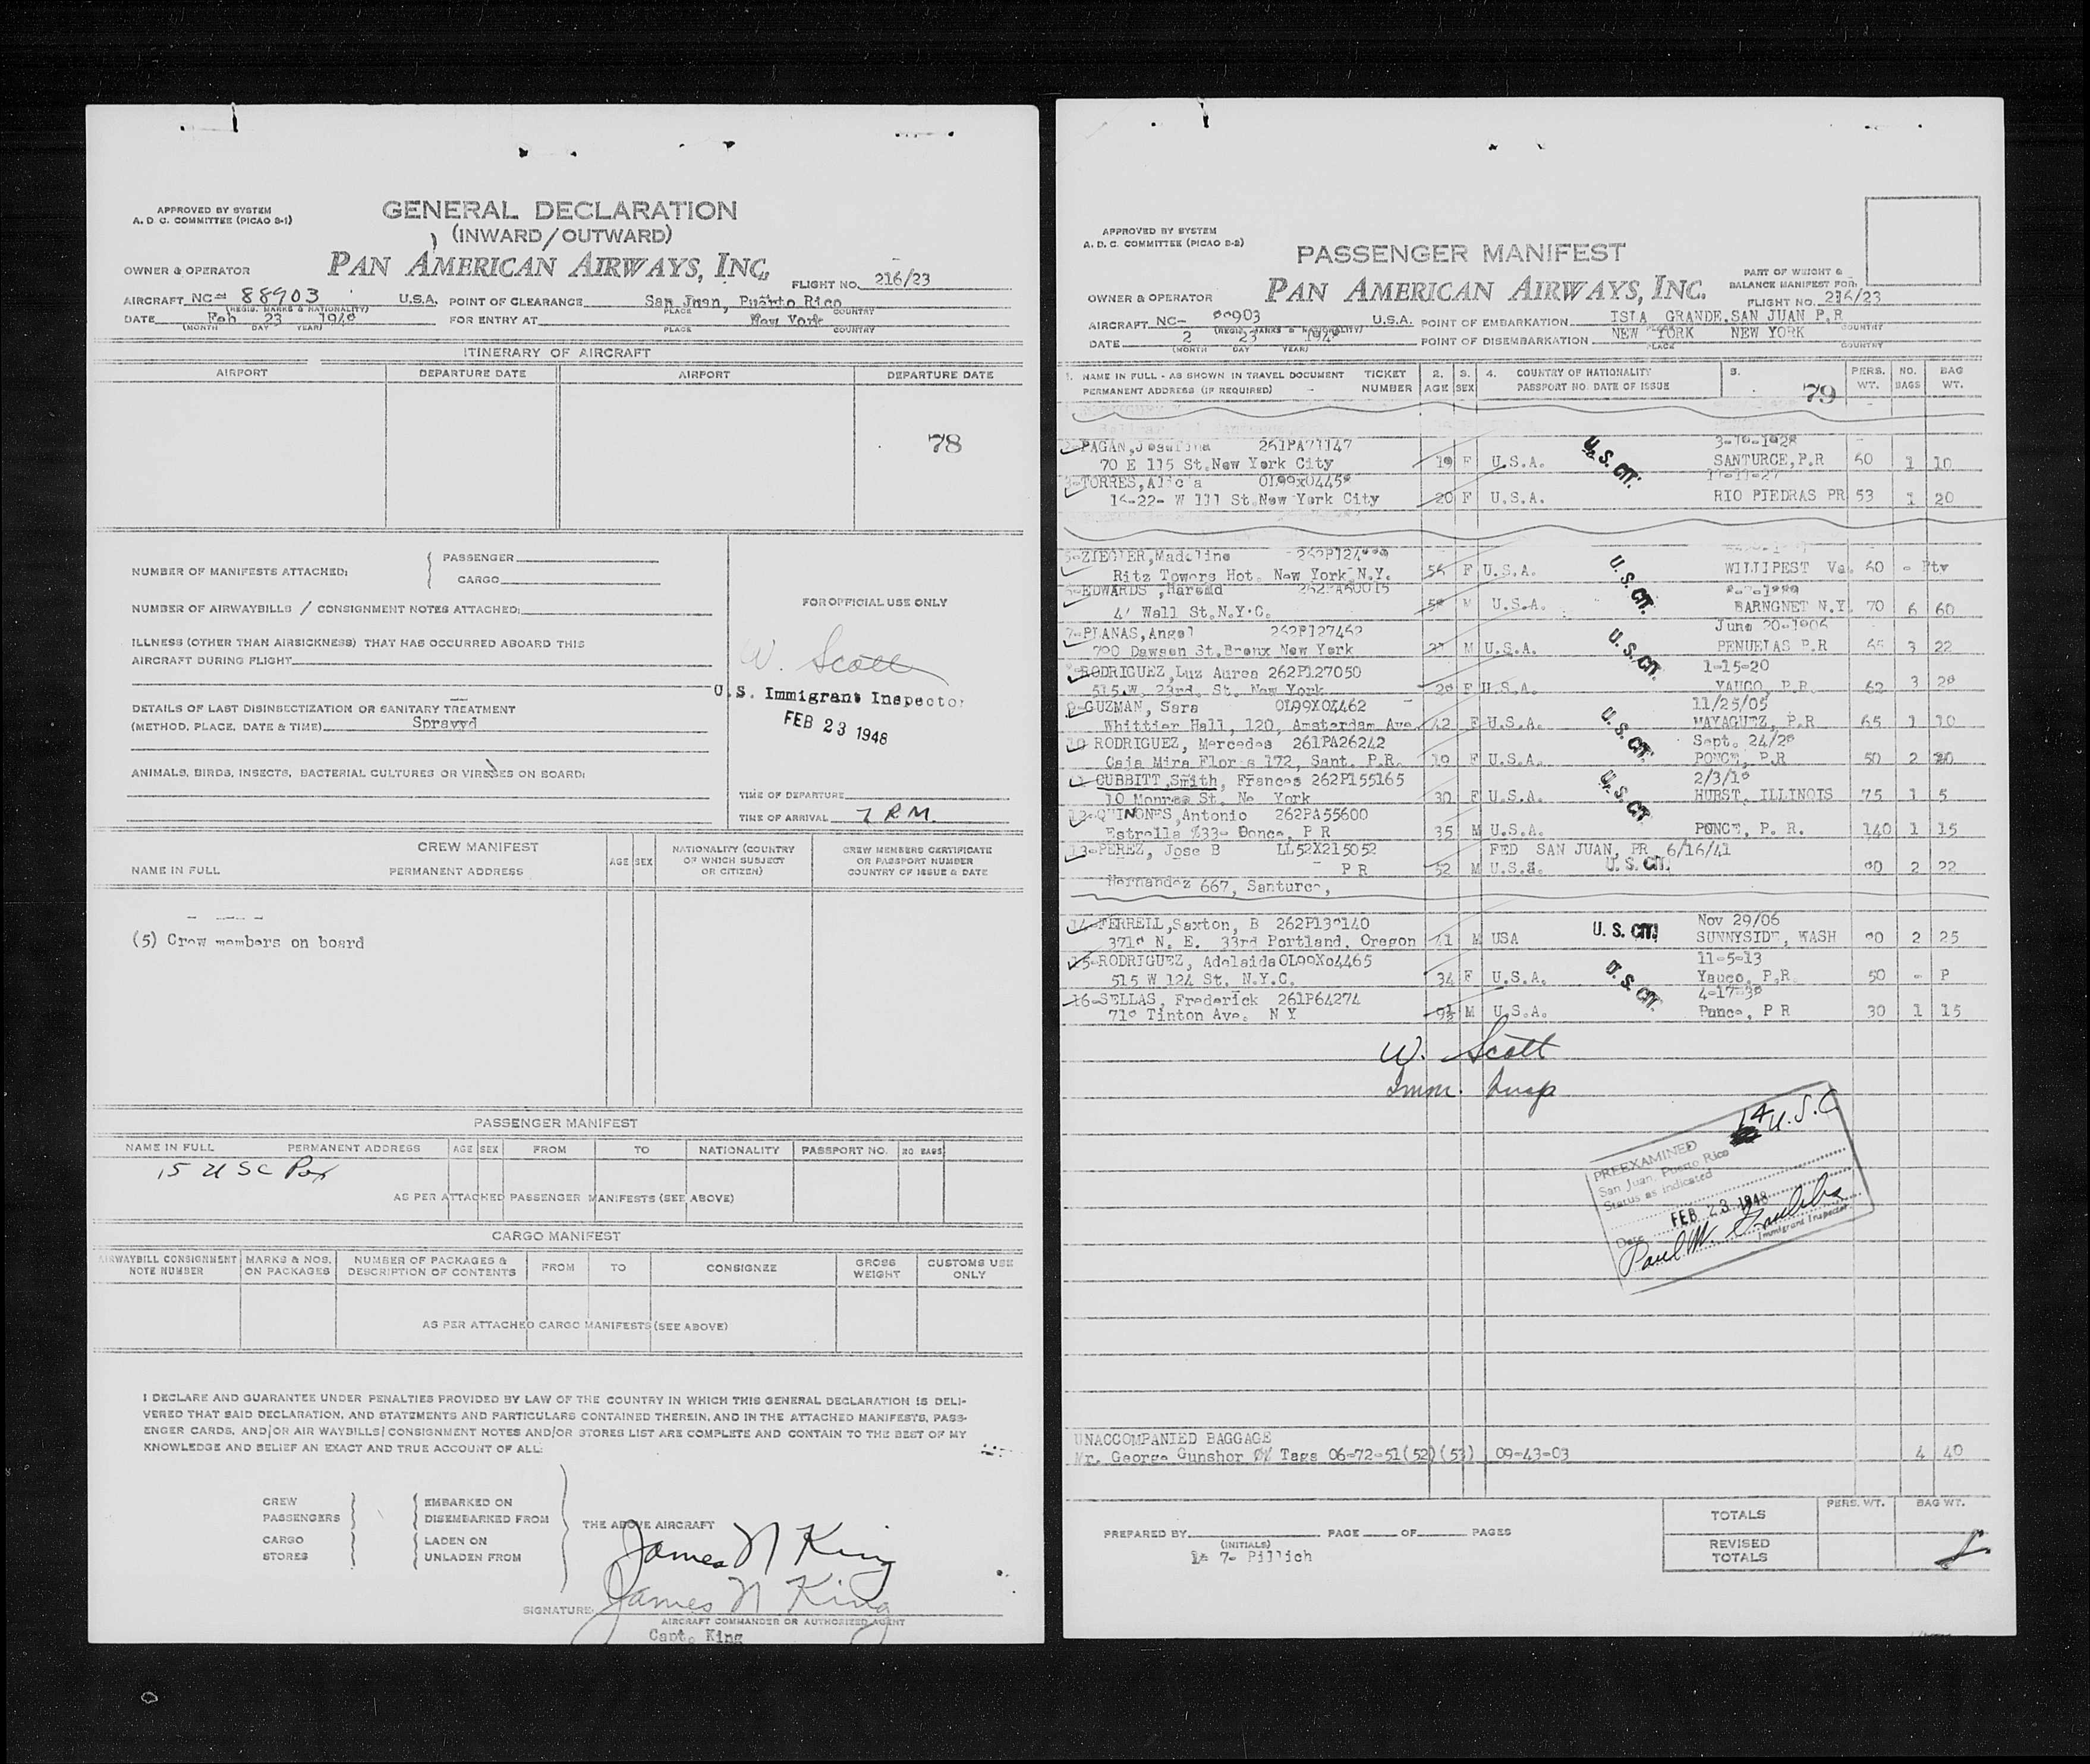 APPROVED BY SYSTEM
A. D C. COMMITTEE (PICAO B-1)
GENERAL DECLARATION
(INWARD/OUTWARD)
PAN AMERICAN AIRWAYS, INC.
OWNER & OPERATOR
FLIGHT NO. 216/23
AIRCRAFT NC- 88903 U.S.A. POINT OF CLEARANCE San Juan, Puerto Rico
(REGIS. MARKS & NATIONALITY) PLACE COUNTRY
DATE Feb 23 1948 FOR ENTRY AT New York
(MONTH DAY YEAR) PLACE COUNTRY
ITINERARY OF AIRCRAFT
AIRPORT DEPARTURE DATE AIRPORT DEPARTURE DATE
78
NUMBER OF MANIFESTS ATTACHED: PASSENGER
CARGO
NUMBER OF AIRWAYBILLS / CONSIGNMENT NOTES ATTACHED:
ILLNESS (OTHER THAN AIRSICKNESS) THAT HAS OCCURRED ABOARD THIS
AIRCRAFT DURING FLIGHT
DETAILS OF LAST DISINSECTIZATION OR SANITARY TREATMENT
(METHOD, PLACE, DATE & TIME) Sprayyd
ANIMALS, BIRDS, INSECTS, BACTERIAL CULTURES OR VIRUSES ON BOARD:
FOR OFFICIAL USE ONLY
W. Scott
U.S. Immigrant Inspector
FEB 23 1948
TIME OF DEPARTURE
TIME OF ARRIVAL 7 P.M.
CREW MANIFEST
NAME IN FULL PERMANENT ADDRESS AGE SEX NATIONALITY (COUNTRY OF WHICH SUBJECT OR CITIZEN) CREW MEMBERS CERTIFICATE OR PASSPORT NUMBER COUNTRY OF ISSUE & DATE
(5) Crew members on board
PASSENGER MANIFEST
NAME IN FULL PERMANENT ADDRESS AGE SEX FROM TO NATIONALITY PASSPORT NO. NO BAGS
15 USC Pax
AS PER ATTACHED PASSENGER MANIFESTS (SEE ABOVE)
CARGO MANIFEST
AIRWAYBILL CONSIGNMENT NOTE NUMBER MARKS & NOS. ON PACKAGES NUMBER OF PACKAGES & DESCRIPTION OF CONTENTS FROM TO CONSIGNEE GROSS WEIGHT CUSTOMS USE ONLY
AS PER ATTACHED CARGO MANIFESTS (SEE ABOVE)
I DECLARE AND GUARANTEE UNDER PENALTIES PROVIDED BY LAW OF THE COUNTRY IN WHICH THIS GENERAL DECLARATION IS DELI-
VERED THAT SAID DECLARATION, AND STATEMENTS AND PARTICULARS CONTAINED THEREIN, AND IN THE ATTACHED MANIFESTS, PASS-
ENGER CARDS, AND/OR AIR WAYBILLS/CONSIGNMENT NOTES AND/OR STORES LIST ARE COMPLETE AND CONTAIN TO THE BEST OF MY
KNOWLEDGE AND BELIEF AN EXACT AND TRUE ACCOUNT OF ALL:
CREW EMBARKED ON
PASSENGERS DISEMBARKED FROM
THE ABOVE AIRCRAFT
CARGO LADEN ON
STORES UNLADEN FROM
James N King
James N King
SIGNATURE:
AIRCRAFT COMMANDER OR AUTHORIZED AGENT
Capt. King
APPROVED BY SYSTEM
A. D. C. COMMITTEE (PICAO B-2)
PASSENGER MANIFEST
PAN AMERICAN AIRWAYS, INC.
OWNER & OPERATOR
PART OF WEIGHT &
BALANCE MANIFEST FOR:
FLIGHT NO. 216/23
AIRCRAFT NC- 88903 U.S.A. POINT OF EMBARKATION ISLA GRANDE, SAN JUAN P.R
(REGIS. MARKS & NATIONALITY) PLACE COUNTRY
DATE 2 23 1948 POINT OF DISEMBARKATION NEW YORK NEW YORK
(MONTH DAY YEAR) PLACE COUNTRY
1. NAME IN FULL - AS SHOWN IN TRAVEL DOCUMENT TICKET 2. 3. 4. COUNTRY OF NATIONALITY 5. PERS. NO. BAG
PERMANENT ADDRESS (IF REQUIRED) NUMBER AGE SEX PASSPORT NO. DATE OF ISSUE 79 WT. BAGS WT.
2-PAGAN, Josefina 261PA71147 3-19-1928
70 E 115 St. New York City 19 F U.S.A. U.S. CIT. SANTURCE, P.R 60 1 10
3-TORRES, Alicia OL99x04458 11-11-27
16-22- W 111 St. New York City 20 F U.S.A. RIO PIEDRAS PR 53 1 20
5-ZIEGLER, Madeline
Ritz Towers Hot. New York N.Y. 56 F U.S.A. U.S. CIT. WILLIPEST Va. 60 - Ptv
6-EDWARDS, Harold 262PA60015
41 Wall St. N.Y.C. 58 M U.S.A. BARNGNET N.Y. 70 6 60
7-PLANAS, Angel 262P127462 June 20-1906
790 Dawson St. Bronx New York M U.S.A. U.S. CIT. PENUELAS P.R 65 3 22
8-RODRIGUEZ, Luz Aurea 262P127050 1-15-20
515 W. 23rd. St. New York 28 F U.S.A. YAUCO, P.R. 62 3 28
9-GUZMAN, Sara OL99X04462 11/25/05
Whittier Hall, 120, Amsterdam Ave. 42 F U.S.A. U.S. CIT. MAYAGUEZ, P.R 65 1 10
10 RODRIGUEZ, Mercedes 261PA26242 Sept. 24/28
Caja Mira Flores 172, Sant. P.R. 19 F U.S.A. PONCE, P.R 50 2 20
11 CUBBITT, Smith, Frances 262P155165 2/3/18
10 Monroe St. Ne York 30 F U.S.A. U.S. CIT HURST, ILLINOIS 75 1 5
12-QUINONES, Antonio 262PA55600
Estrella #33- Ponce, P R 35 M U.S.A. PONCE, P. R. 140 1 15
13-PEREZ, Jose B LL52X215052 FED SAN JUAN, PR 6/16/41
P R 52 M U.S.A. U.S. CIT. 90 2 22
Hernandez 667, Santurce,
14-FERRELL, Saxton, B 262P138140 Nov 29/06
3718 N. E. 33rd Portland, Oregon 41 M USA U.S. CIT. SUNNYSIDE, WASH 90 2 25
15-RODRIGUEZ, Adelaida OL99X04465 11-5-13
515 W 124 St. N.Y.C. 34 F U.S.A. U.S. CIT. Yauco, P.R. 50 - P
16-SELLAS, Frederick 261P64274 4-17-38
718 Tinton Ave. N Y 9½ M U.S.A. Ponce, P R 30 1 15
W. Scott
Imm. Insp
14 U.S.C
PREEXAMINED
San Juan, Puerto Rico
Status as indicated
FEB 23 1948
Date
Paul W.
Immigrant Inspector
UNACCOMPANIED BAGGAGE
Mr. George Gunshor Tags 06-72-51(52)(53) 09-43-03 4 40
PREPARED BY PAGE OF PAGES
(INITIALS)
7- Pillich
PERS. WT. BAG WT.
TOTALS
REVISED TOTALS